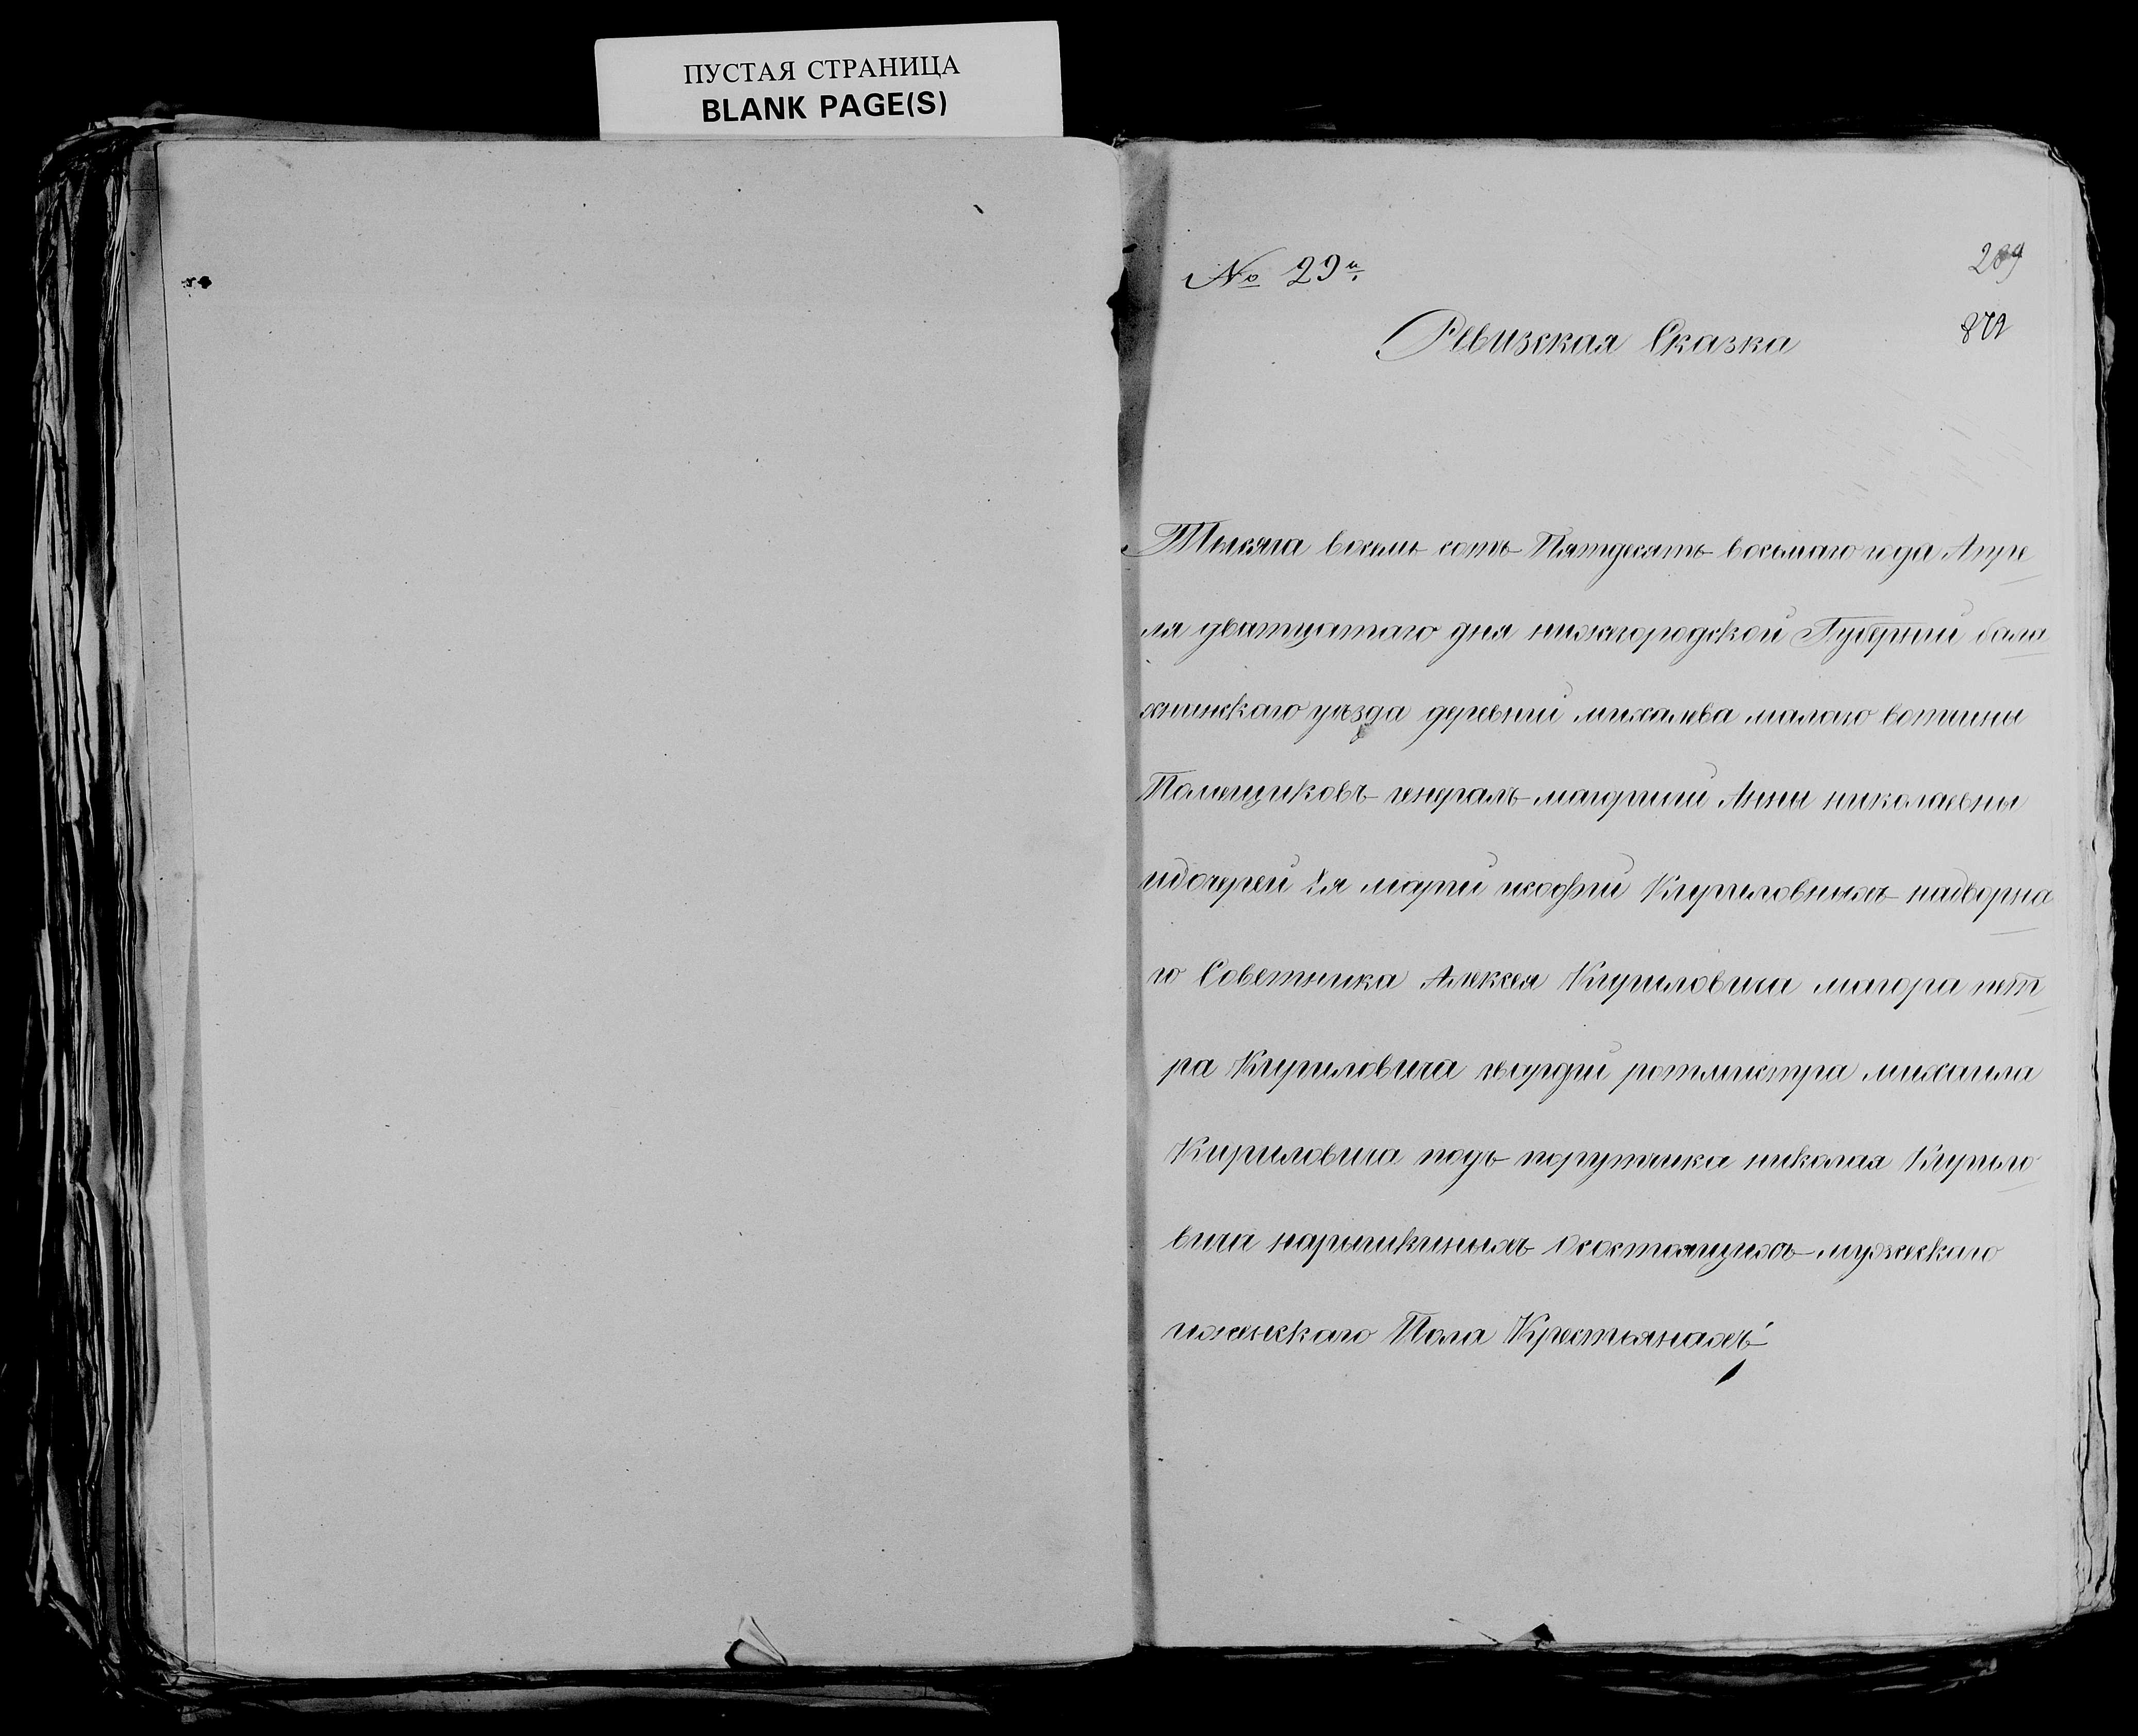 ПУСТАЯ СТРАНИЦА
BLANK PAGE(S)
№ 29й
209
Ревизская Сказка
Тысяча восемь сотъ Пятдесятъ восьмаго года Апре
ля дватцатаго дня нижегородской Губернии бала
хнинскаго уѣзда деревнй михалева малаго вотчины
Помещиковъ генералъ маіорши Анны николаевны
идочерей Ея марпи исофий Кириловныхъ надворна
го Советника Алексея Кириловича маіора пет
ра Кириловича гвардiи ротмистра михаила
Кириловича подъ порутчика николая Кирило
вича нарышкиныхъ осостоящихъ мужескаго
иженскаго Пола Крестьянахъ